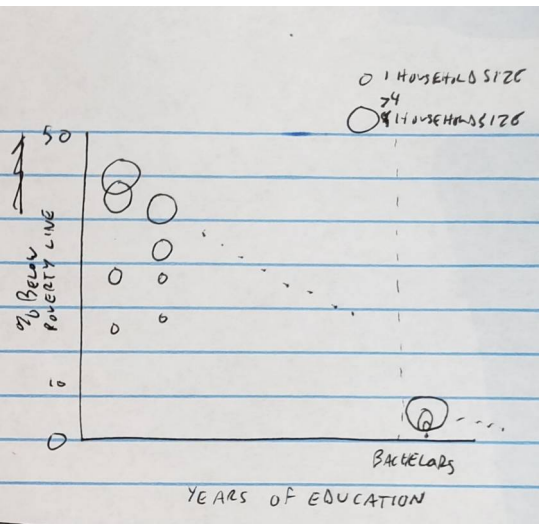 1 HOUSEHOLD SIZE
>4
HOUSEHOLD SIZE
50
% BELOW
POVERTY LINE
10
0
BACHELORS
YEARS OF EDUCATION